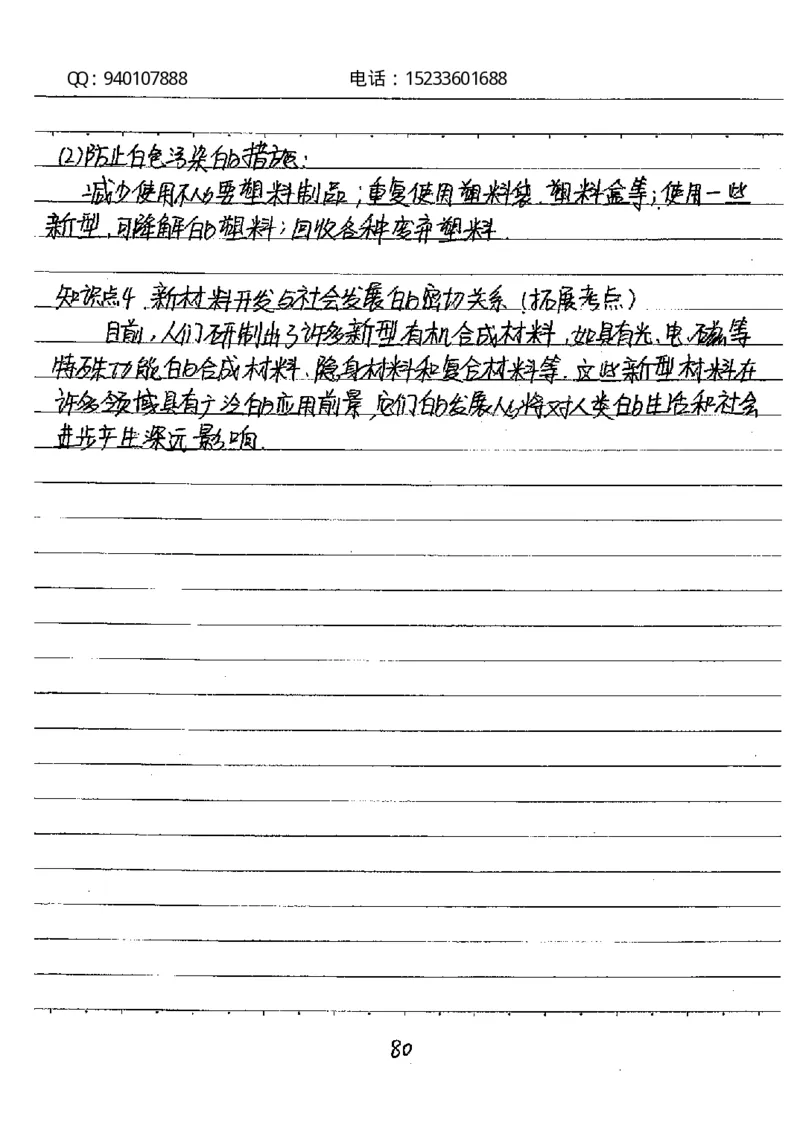 QQ：940107888 电话：15233601688
(2)防止白色污染的措施：
减少使用不必要塑料制品；重复使用塑料袋、塑料盒等；使用一些
新型、可降解的塑料；回收各种废弃塑料.
知识点4.新材料开发与社会发展的密切关系（拓展考点）
目前,人们研制出了许多新型有机合成材料,如具有光、电、磁等
特殊功能的合成材料、隐身材料和复合材料等.这些新型材料在
许多领域具有广泛的应用前景,它们的发展必将对人类的生活和社会
进步产生深远影响.
80